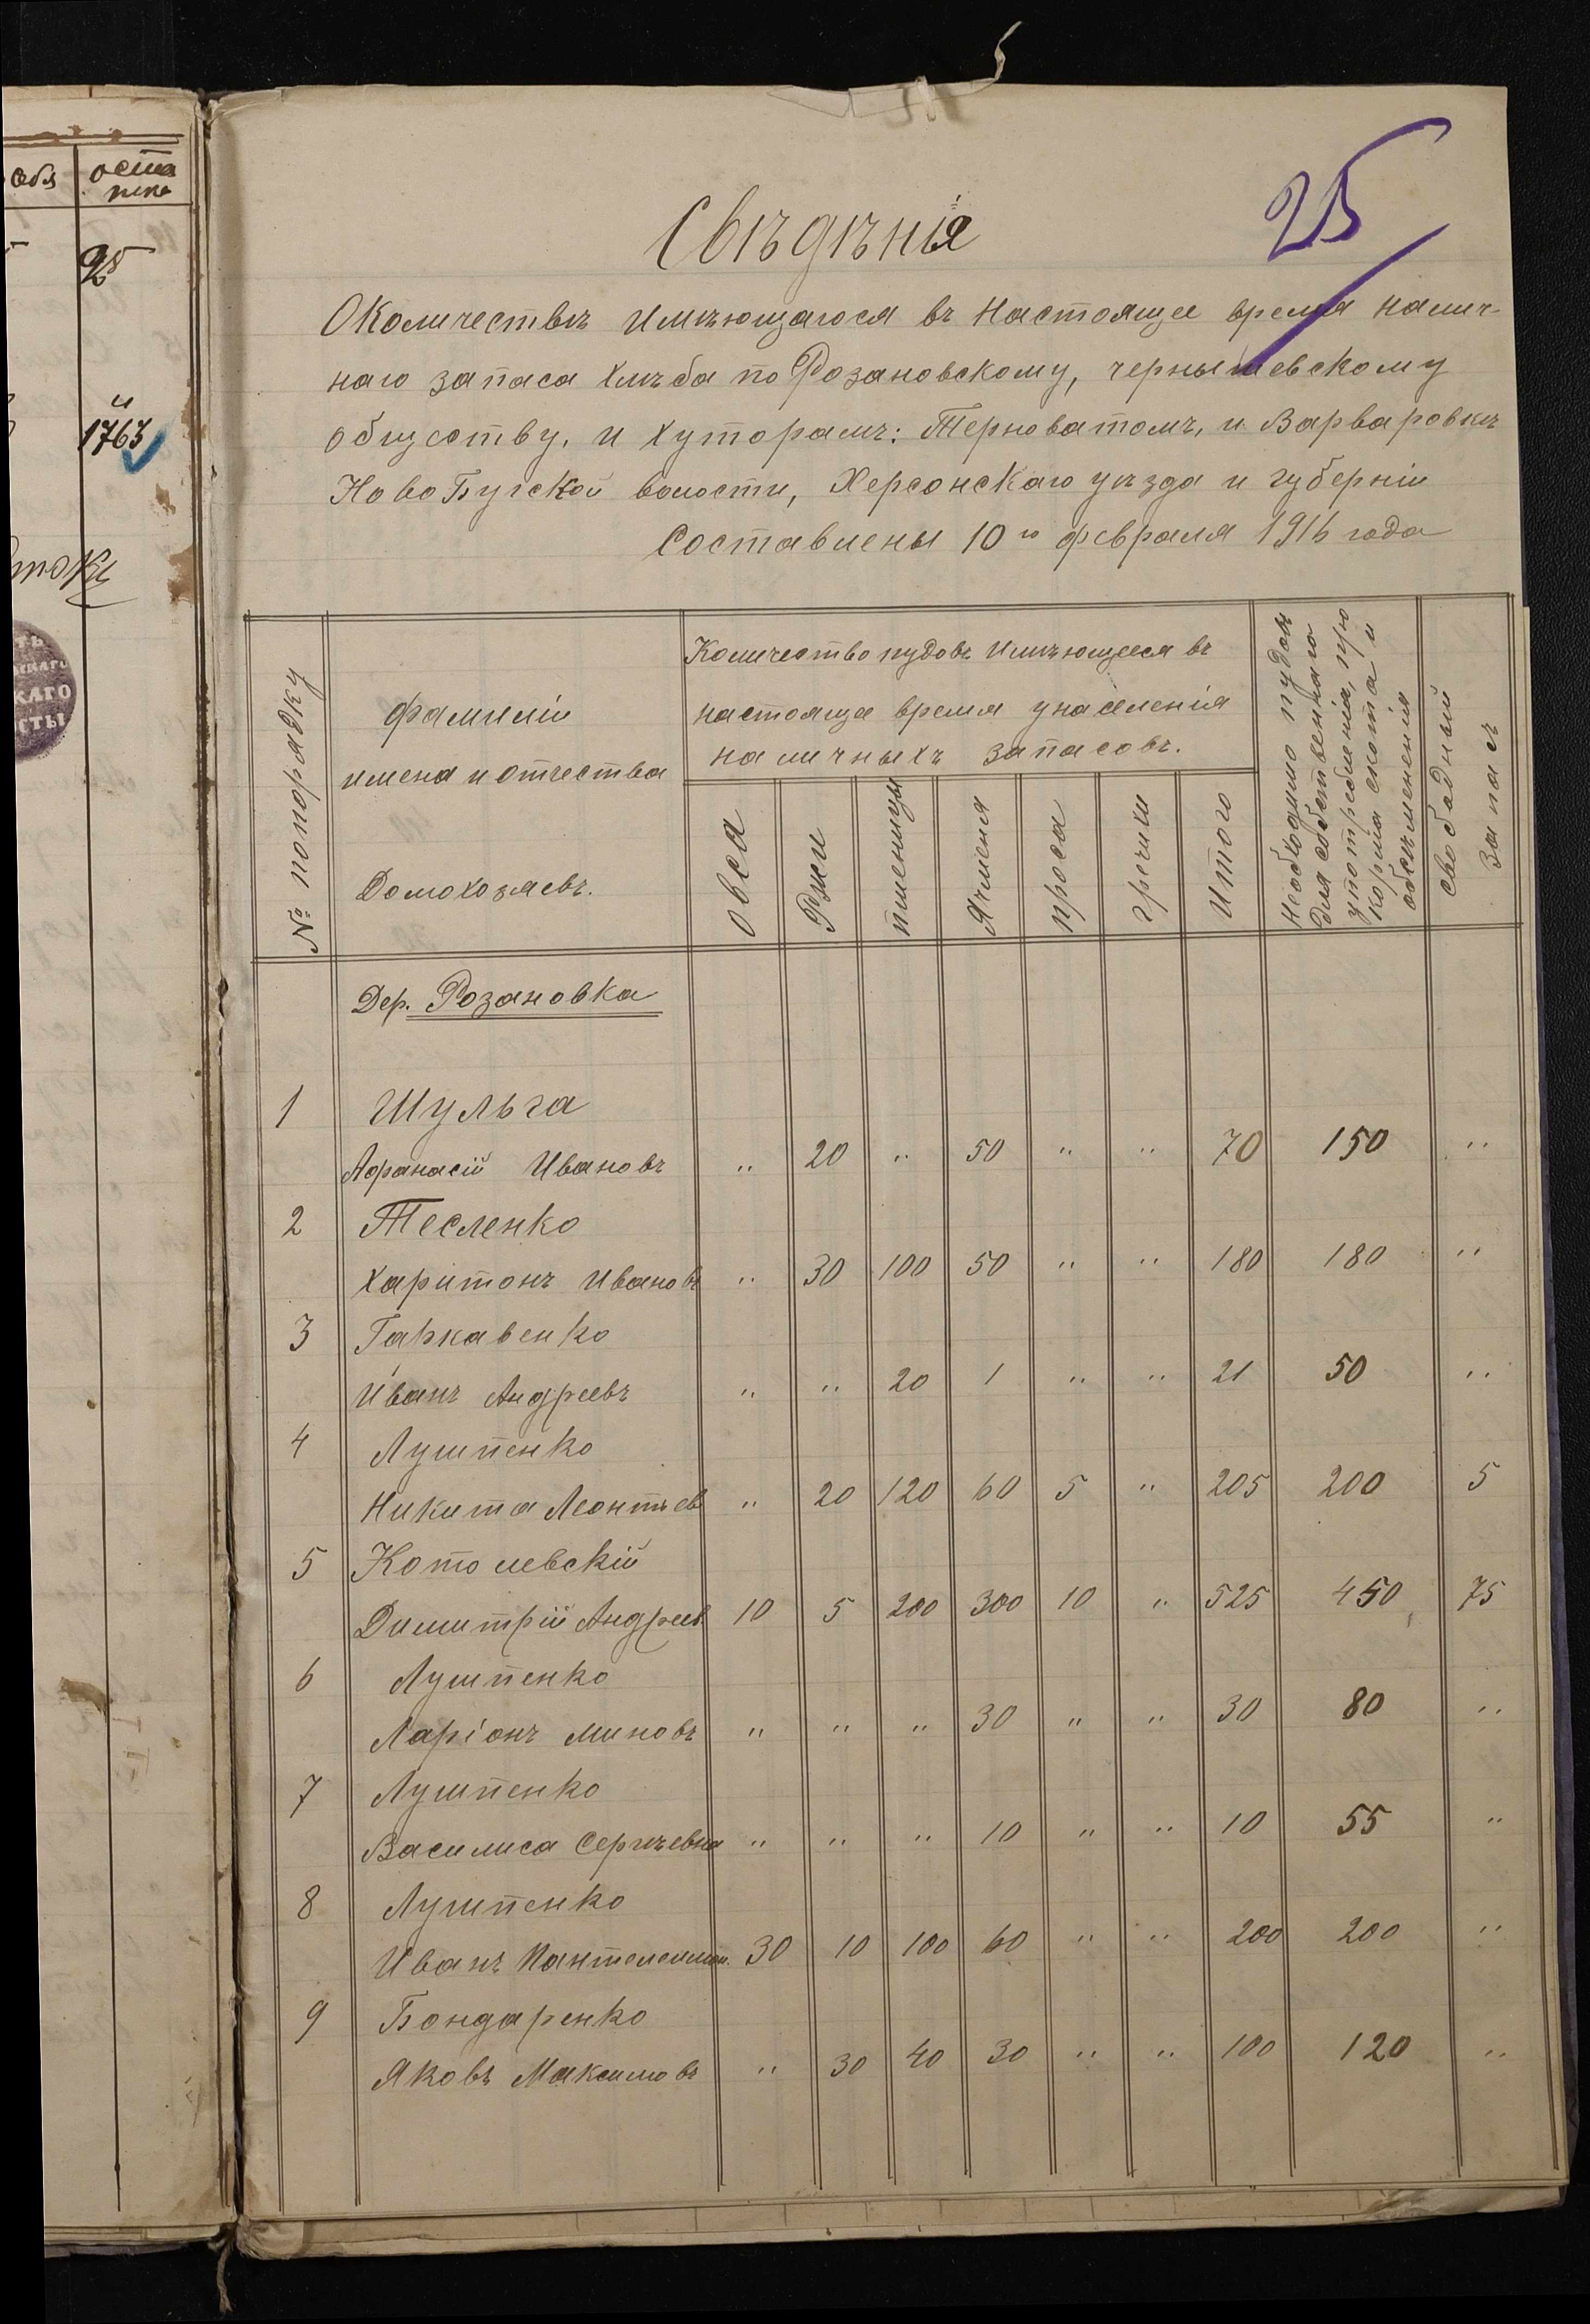 обя
оста
тке
25
и
1763
ть
скаго
каго
сты
25
Свѣдѣнія
О Количествѣ имѣющагося въ настоящее время налич-
наго запаса хлѣба по Розановскому, чернышевскому
обществу, и хуторамъ: Терноватомъ, и Варваровкѣ
Ново Бугской волости, Херсонскаго уѣзда и губерніи
Составлены 10го февраля 1916 года
№ по порядку
фамиліи
имена и отчества
Домохозяевъ.
Количество пудовъ имѣющееся въ
настояще время у населенія
наличныхъ запасовъ.
овса
Ржи
пшеницы
Ячменя
проса
гречихи
Итого
Необходимо пудовъ
для собственнаго
употребленія, про
корма скота и
обсѣмененія
свободный
запасъ
Дер. Розановка
1 Шульга
Афанасій Ивановъ " 20 " 50 " " 70 150 "
2 Тесленко
Харитонъ Ивановъ " 30 100 50 " " 180 180 "
3 Гаркавенко
Иванъ Андреевъ " " 20 1 " " 21 50 "
4 Лушпенко
Никита Леонтьев " 20 120 60 5 " 205 200 5
5 Котолевскій
Димитрій Андреев 10 5 200 300 10 " 525 450 75
6 Лушпенко
Ларіонъ Миновъ " " " 30 " " 30 80 "
7 Лушпенко
Василиса Сергѣевна " " " 10 " " 10 55 "
8 Лушпенко
Иванъ Пантелеимон. 30 10 100 60 " " 200 200 "
9 Бондаренко
Яковъ Максимовъ " 30 40 30 " " 100 120 "